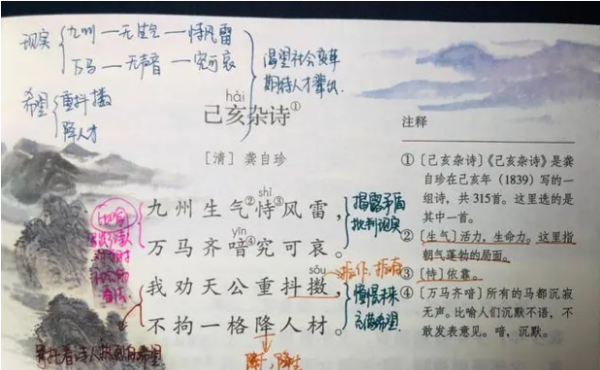 现实 九州—无生气—恃风雷
万马—无声音—究可哀
渴望社会变革
期待人才辈出
希望 重抖擞
降人才
hài
己亥杂诗①
[清] 龚自珍
shì
九州生气②恃③风雷，
yīn
万马齐喑④究可哀。
sǒu
我劝天公重抖擞，
不拘一格降人材。
揭露矛盾
批判现实
憧憬未来
充满希望
注释
①[己亥杂诗]《己亥杂诗》是龚
自珍在己亥年（1839）写的一
组诗，共 315首。这里选的是
其中一首。
②[生气]活力，生命力。这里指
朝气蓬勃的局面。
③[恃]依靠。
④[万马齐喑]所有的马都沉寂
无声。比喻人们沉默不语，不
敢发表意见。喑，沉默。